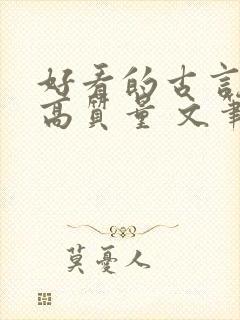 好看的古言
高质量 文笔
莫憂人